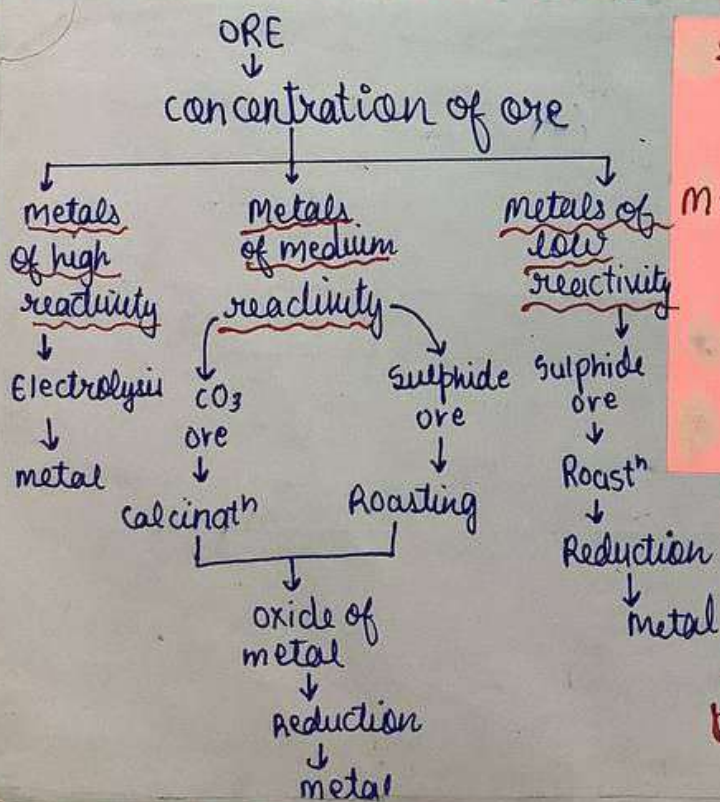 ORE
concentration of ore
Metals
of high
reactivity
Electrolysis
metal
Metals
of medium
reactivity
CO3
ore
calcinatn
Sulphide
ore
Roasting
oxide of
metal
Reduction
metal
Metals of
low
reactivity
Sulphide
ore
Roastn
Reduction
Metal
M